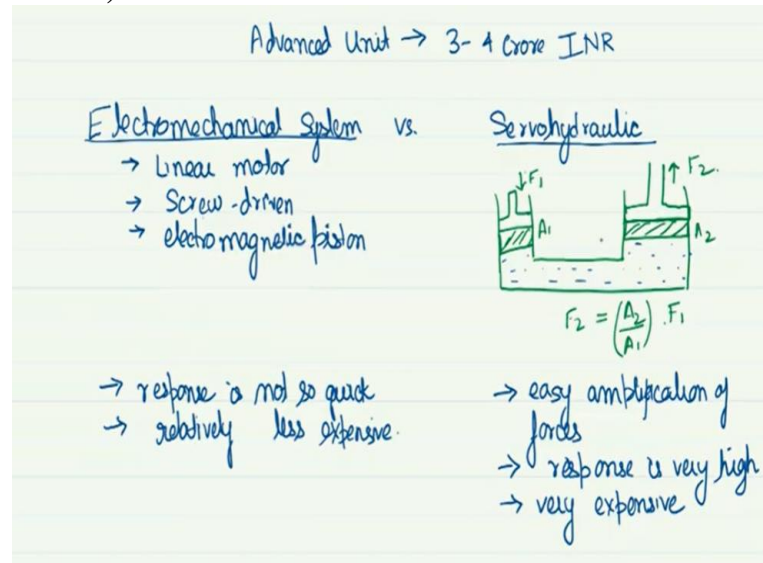 Advanced Unit → 3-4 Crore INR
Electromechanical System vs. Servohydraulic
→ Linear motor
→ Screw-driven
→ electromagnetic piston
↓F1
↑F2
A1
A2
F2 = (A2/A1) . F1
→ response is not so quick
→ relatively less expensive.
→ easy amplification of
forces
→ response is very high
→ very expensive